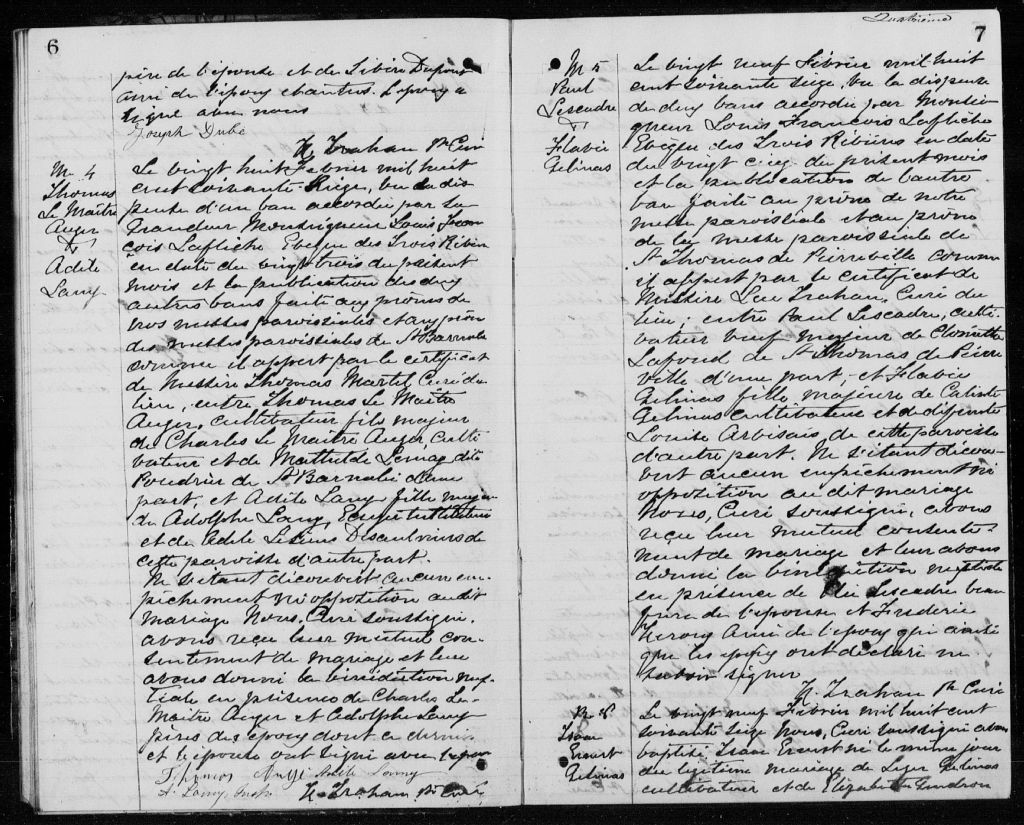 6
père de l'épouse et de Libère Dupont
ami de l'époux et autres. L'époux a
signé avec nous
Joseph Dubé
N. Trahan Ptre Curé
M 4
Thomas
Le Maître
Auger
&
Adile
Lamy
Le vingt huit Février mil huit
cent soixante Siège, vu la dis
pense d'un ban accordée par Sa
Grandeur Monseigneur Louis Fran
çois Laflèche Evêque des Trois Rivières
en date du vingt trois du présent
mois et la publication des deux
autres bans faite aux prônes de
nos messes paroissiales et aux prônes
des messes paroissiales de St Barnabé
comme il appert par le certificat
de Messire Thomas Martel Curé du
lieu, entre Thomas Le Maître
Auger, cultivateur fils majeur
de Charles Le Maître Auger, culti
vateur et de Mathilde Lemay dit
Poudrier de St Barnabé d'une
part, et Adile Lamy fille majeure
de Adolphe Lamy, Ecuyer
et de Adele
cette paroisse d'autre part.
Ne s'étant découvert aucun em-
pêchement ni opposition au dit
mariage Nous, Curé soussigné,
avons reçu leur mutuel con-
sentement de mariage et leur
avons donné la bénédiction nup
tiale en présence de Charles Le-
Maître Auger et Adolphe Lamy
pères des époux dont ce dernier
et l'épouse ont signé avec
Adile Lamy
A. Lamy
N. Trahan Ptre Curé
7
M 5
Paul
Lescadre
&
Flavie
Gelinas
Le vingt neuf Février mil huit
cent soixante seize, vu la dispense
de deux bans accordée par Monsei
gneur Louis François Laflèche
Evêque des Trois Rivières en date
du vingt cinq du présent mois
et la publication de l'autre
ban faite au prône de notre
messe paroissiale et au prône
de la messe paroissiale de
St Thomas de Pierreville comme
il appert par le certificat de
Messire Luc Trahan, Curé du
lieu; entre Paul Lescadre, culti-
vateur veuf majeur de
Lafond de St Thomas de Pierre
ville d'une part; et Flavie
Gelinas fille majeure de Calixte
Gelinas cultivateur et de défunte
Louise de cette paroisse
d'autre part. Ne s'étant décou-
vert aucun empêchement ni
opposition au dit mariage
Nous, Curé soussigné, avons
reçu leur mutuel consente-
ment de mariage et leur avons
donné la bénédiction nuptiale
en présence de Lescadre beau
frère de l'épouse et Frederic
Heroux Ami de l'époux qui ainsi
que les époux ont déclaré ne
savoir signer
N. Trahan Ptre Curé
B 8
Isaac
Ernest
Gelinas
Le vingt neuf Février mil huit cent
soixante seize Nous, Curé soussigné avons
baptisé Isaac Ernest né le même jour
du légitime mariage de Leger Gelinas
cultivateur et de Elizabeth Gendron